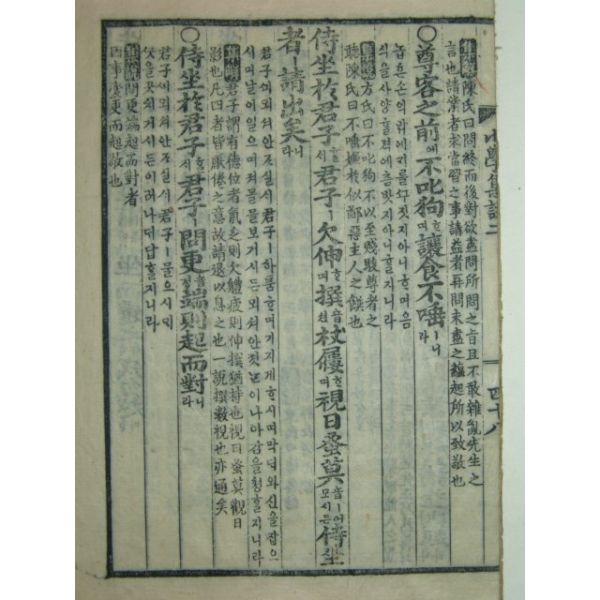 集解陳氏曰問終而後對欲盡問所問之旨且不敢雜亂先生之
言也請業者求當習之事請益者再問未盡之蘊起所以致敬也
○尊客之前애不叱狗ᄒᆞ며讓食不唾ㅣ니라
놉흔손의압헤개를ᄭᅮ짓지아니ᄒᆞ며음
식을사양ᄒᆞᆯᄯᅢ에춤밧지아니ᄒᆞᆯ지니라
集解方氏曰不叱狗不以至賤駭尊者之
聽陳氏曰不唾嫌於似鄙惡主人之饌也
侍坐於君子ᄒᆞᆯᄉᆡ君子ㅣ欠伸ᄒᆞ며撰杖屨ᄒᆞ며視日蚤莫ㅣ어시든侍坐
者ㅣ請出矣니라
君子에뫼셔안조실ᄉᆡ君子ㅣ하품ᄒᆞ며기지게ᄒᆞ시며막ᄃᆡ와신을잡으
시며날이일으며져믈물보기시든뫼셔안젓ᄂᆞᆫ이나아감을쳥ᄒᆞᆯ지니라
集解君子謂有德位者氣乏則欠體疲則伸撰猶持也視日蚤莫觀日
影也凡四者皆厭倦之意故請退以息之也一說撰數視也亦通矣
○侍坐於君子ᄒᆞᆯᄉᆡ君子ㅣ問更端則起而對니라
君子에뫼셔안조실ᄉᆡ君子ㅣ물으시되
ᄭᅳᆺ을곳치거시든이러나ᄃᆡ답ᄒᆞᆯ지니라
集說問更端起而對者
因事變更而起敬也
小學集註二
四十八